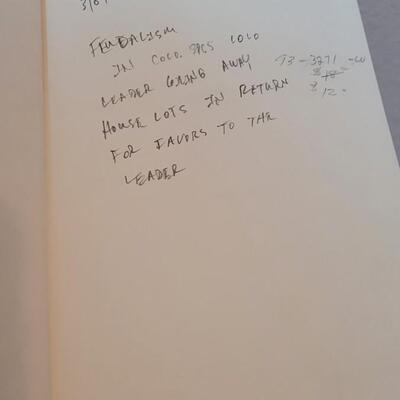 FEUDALISM
IN COLO. SPGS COLO
LEADER GIVING AWAY
HOUSE LOTS IN RETURN
FOR FAVORS TO THE
LEADER
93-3271
$12.